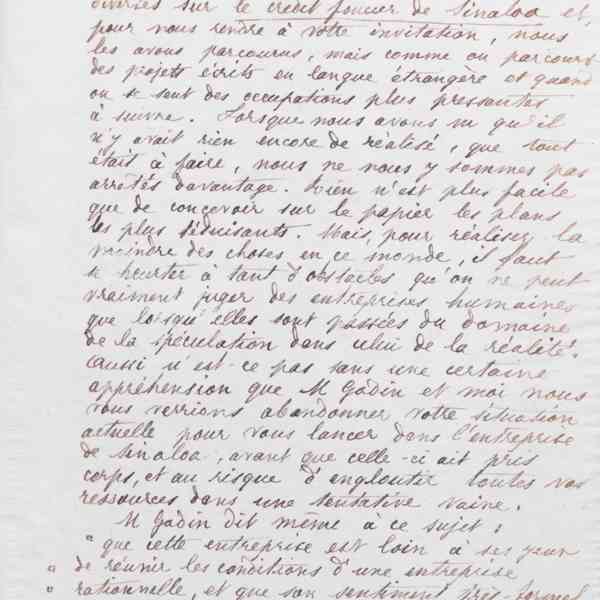 diverses sur le crédit foncier de Sinaloa et,
pour nous rendre à votre invitation, nous
les avons parcourus, mais comme on parcourt
des projets écrits en langue étrangère et quand
on se sent des occupations plus pressantes
à suivre. Lorsque nous avons vu qu'il
n'y avait rien encore de réalisé, que tout
était à faire, nous ne nous y sommes pas
arrêtés davantage. Rien n'est plus facile
que de concevoir sur le papier les plans
les plus séduisants. Mais, pour réaliser la
moindre des choses en ce monde, il faut
se heurter à tant d'obstacles qu'on ne peut
vraiment juger des entreprises humaines
que lorsqu'elles sont passées du domaine
de la spéculation dans celui de la réalité.
Aussi n'est-ce pas sans une certaine
appréhension que M Godin et moi nous
vous verrions abandonner votre situation
actuelle pour vous lancer dans l'entreprise
de Sinaloa, avant que celle-ci ait pris
corps, et au risque d'engloutir toutes vos
ressources dans une tentative vaine.
M Godin dit même à ce sujet :
" que cette entreprise est loin à ses yeux
" de réunir les conditions d'une entreprise
" rationnelle, et que son sentiment très-formel